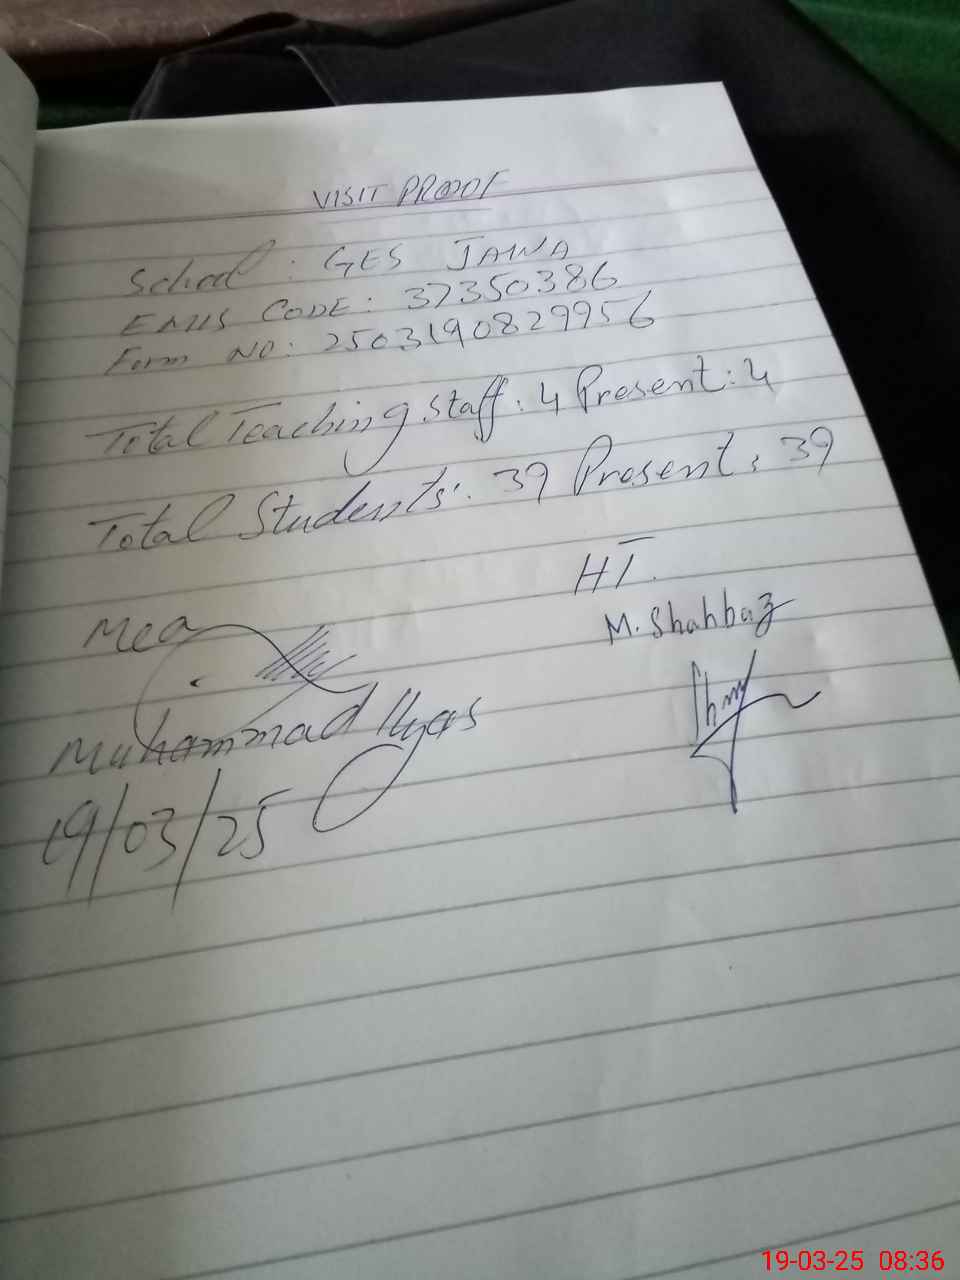 VISIT PROOF
School : GES JAWA
EMIS CODE: 37350386
Form NO: 2503190829956
Total Teaching Staff: 4 Present: 4
Total Students: 39 Present: 39
HT
Mea
M. Shahbaz
Muhammad Ilyas
19/03/25
19-03-25 08:36